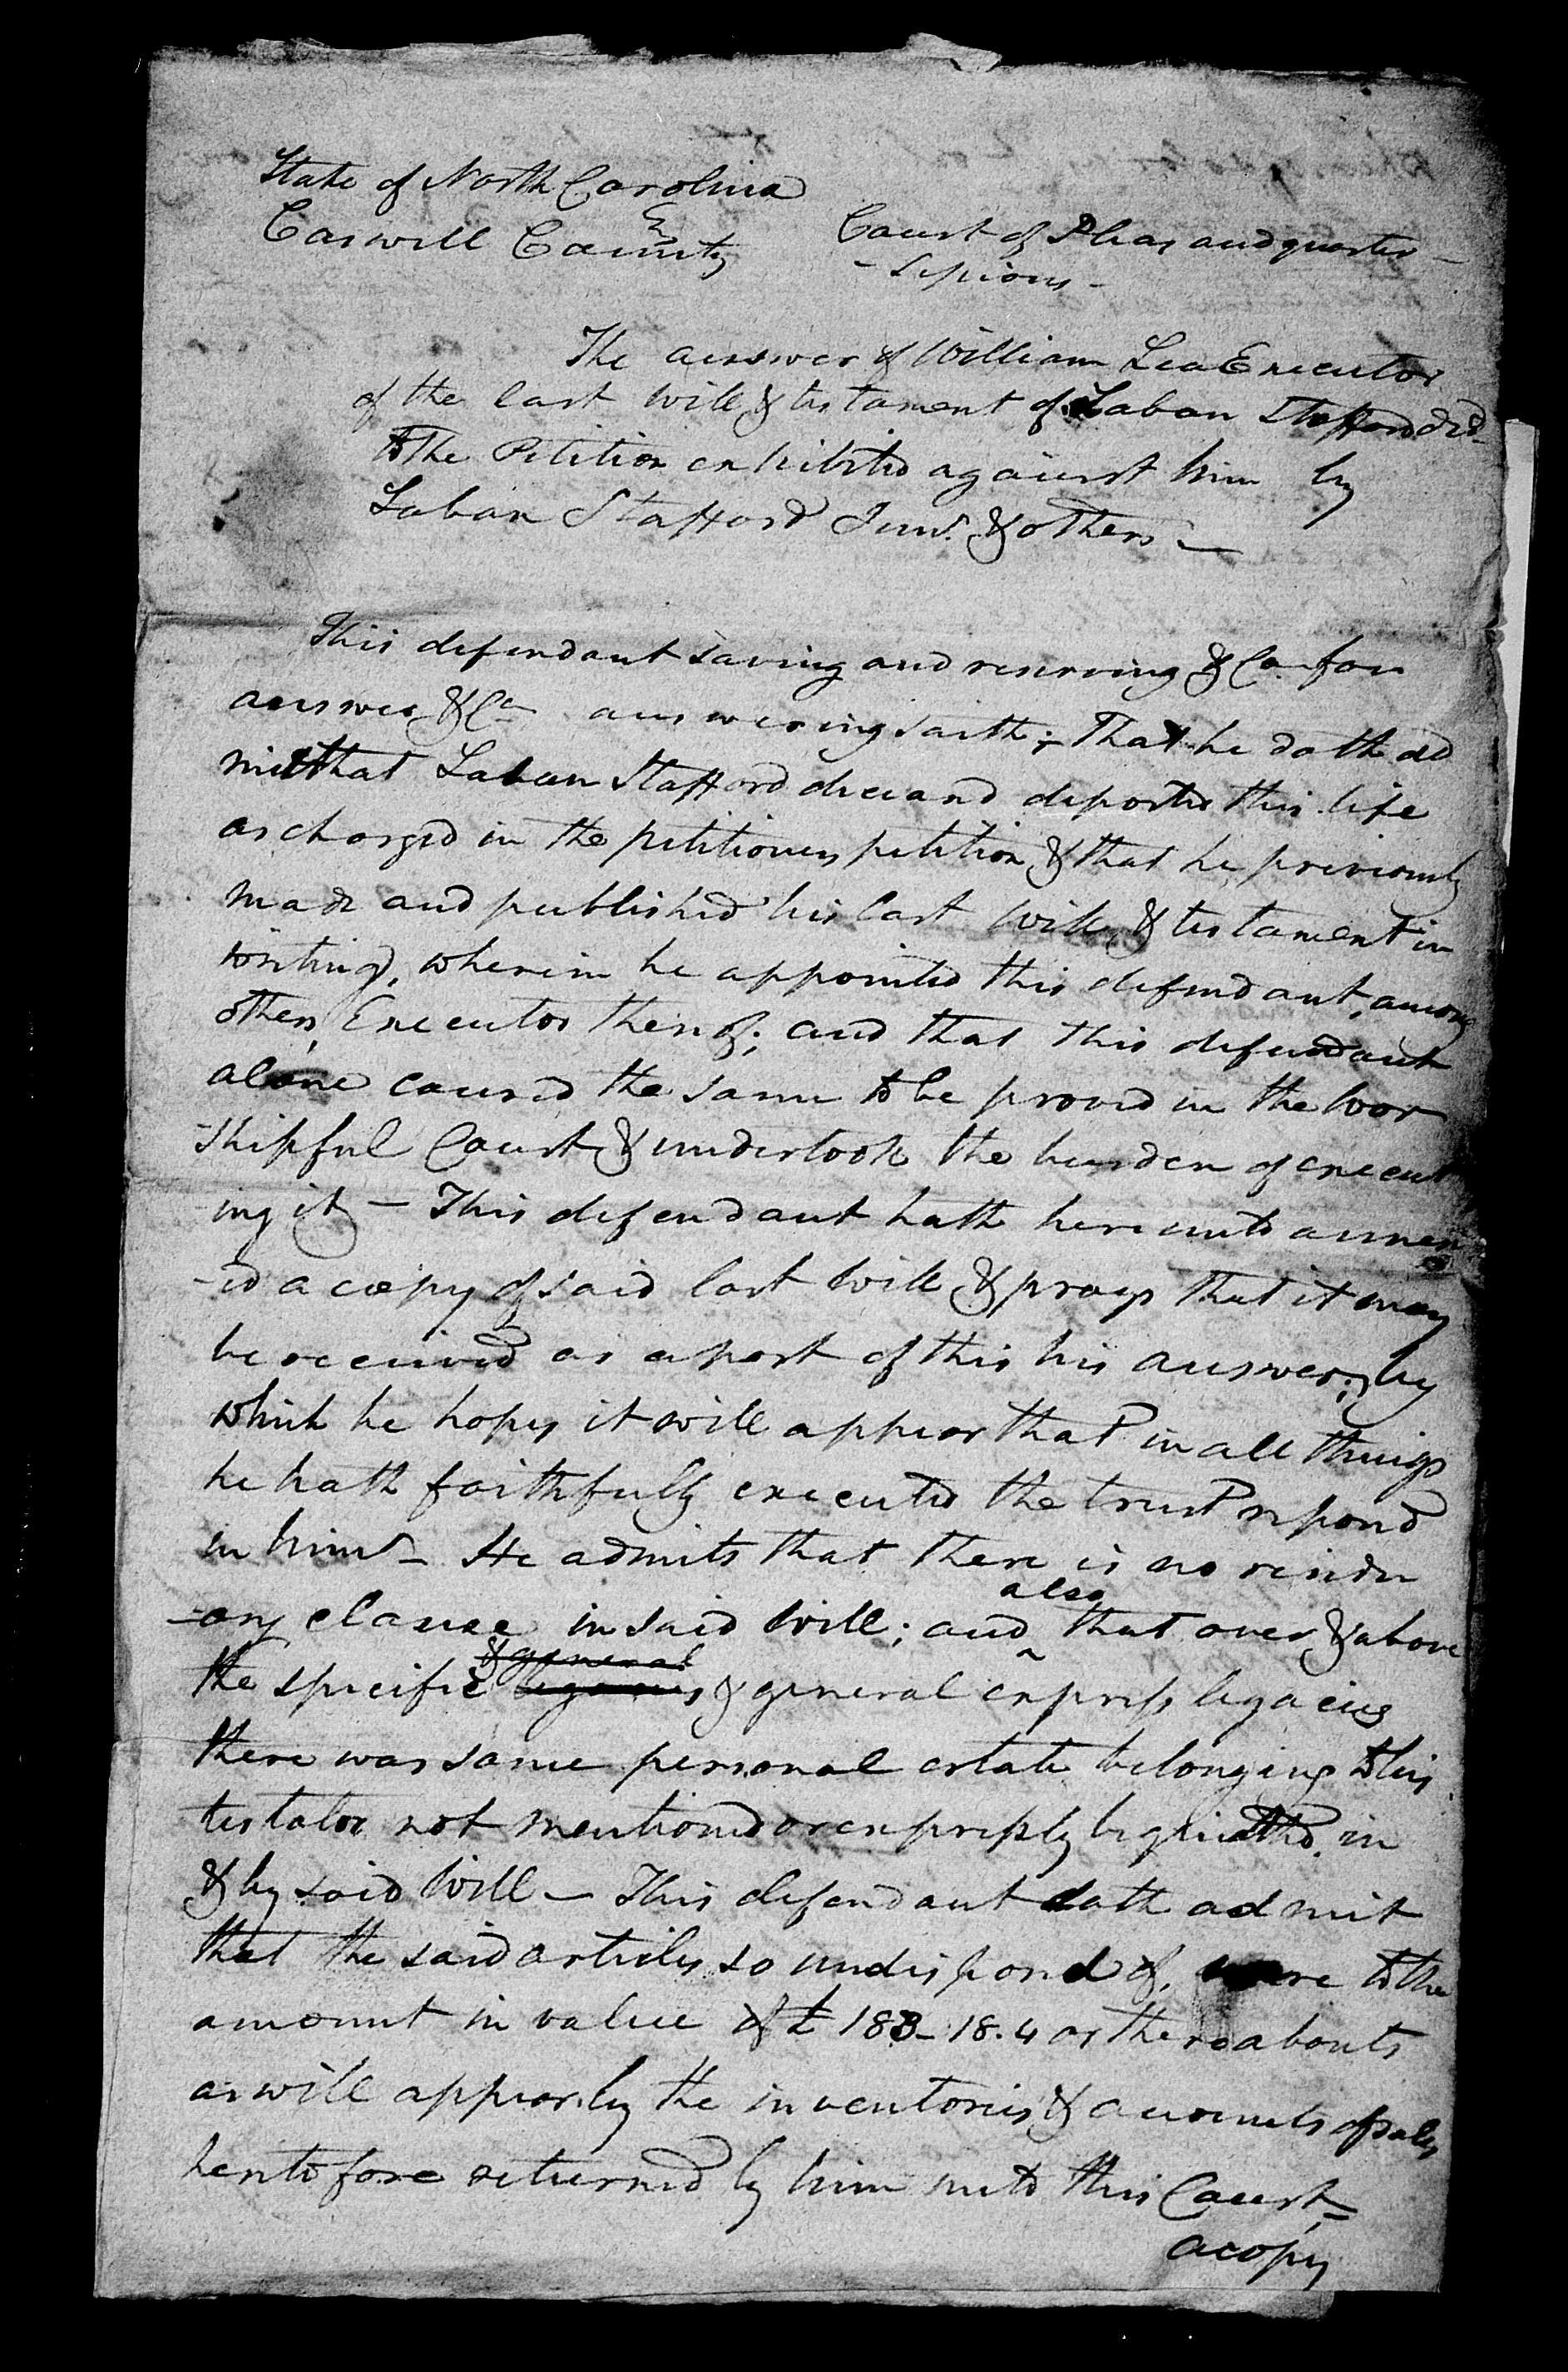 State of North Carolina
Caswell County
Court of Pleas and quarter
- Sessions -
The answer of William Lea Executor
of the last Will & testament of Laban Stafford decd.
to the Petition exhibited against him by
Laban Stafford Junr. & others —
This defendant saving and reserving &Ca. for
answer &Ca answering saith; That he doth ad
mit that Laban Stafford deceasd departed this life
as charged in the petitioners petition & that he previously
made and published his last Will & testament in
writing, wherein he appointed this defendant, among
others, Executor thereof; and that this defendant
alone caused the same to be proved in the Wor
-shipful Court & undertook the burden of execut
ing it — This defendant hath hereunto annex
-ed a copy of said last Will & prays that it may
be received as a part of this his answer; by
which he hopes it will appear that in all things
he hath faithfully executed the trust reposed
in him — He admits that there is no residu
-ary clause in said Will; and also that over & above
the specific & general legacies & general express legacies
there was some personal estate belonging to his
testator not mentioned or expressly bequeathed in
& by said Will — This defendant doth admit
that the said articles so undisposed of, were to the
amount in value of £ 183-18.4 or thereabouts
as will appear by the inventories & accounts of sales
heretofore returned by him unto this Court —
a copy